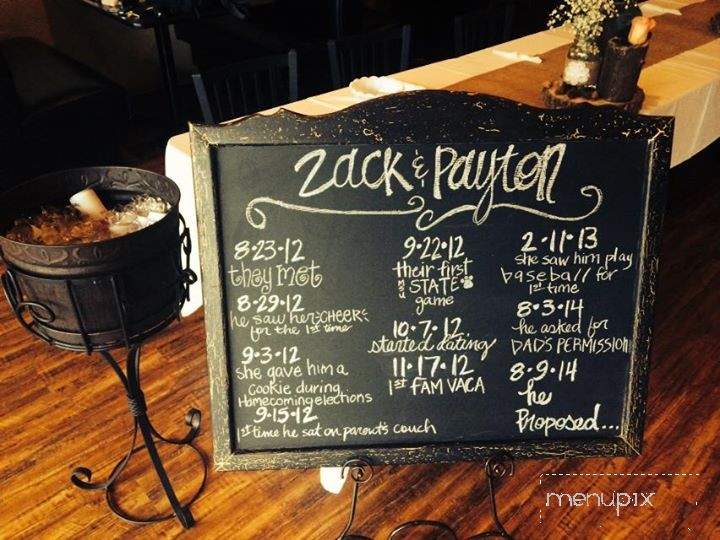 Zack & Payton
8·23·12
they met
8·29·12
he saw her CHEER
for the 1st time
9·3·12
she gave him a
cookie during
Homecoming elections
9·15·12
1st time he sat on parent's couch
9·22·12
their first
MSU STATE
game
10·7·12
started dating
11·17·12
1st FAM VACA
2·11·13
she saw him play
baseball for
1st time
8·3·14
he asked for
DAD'S PERMISSION
8·9·14
he
Proposed...
menupix